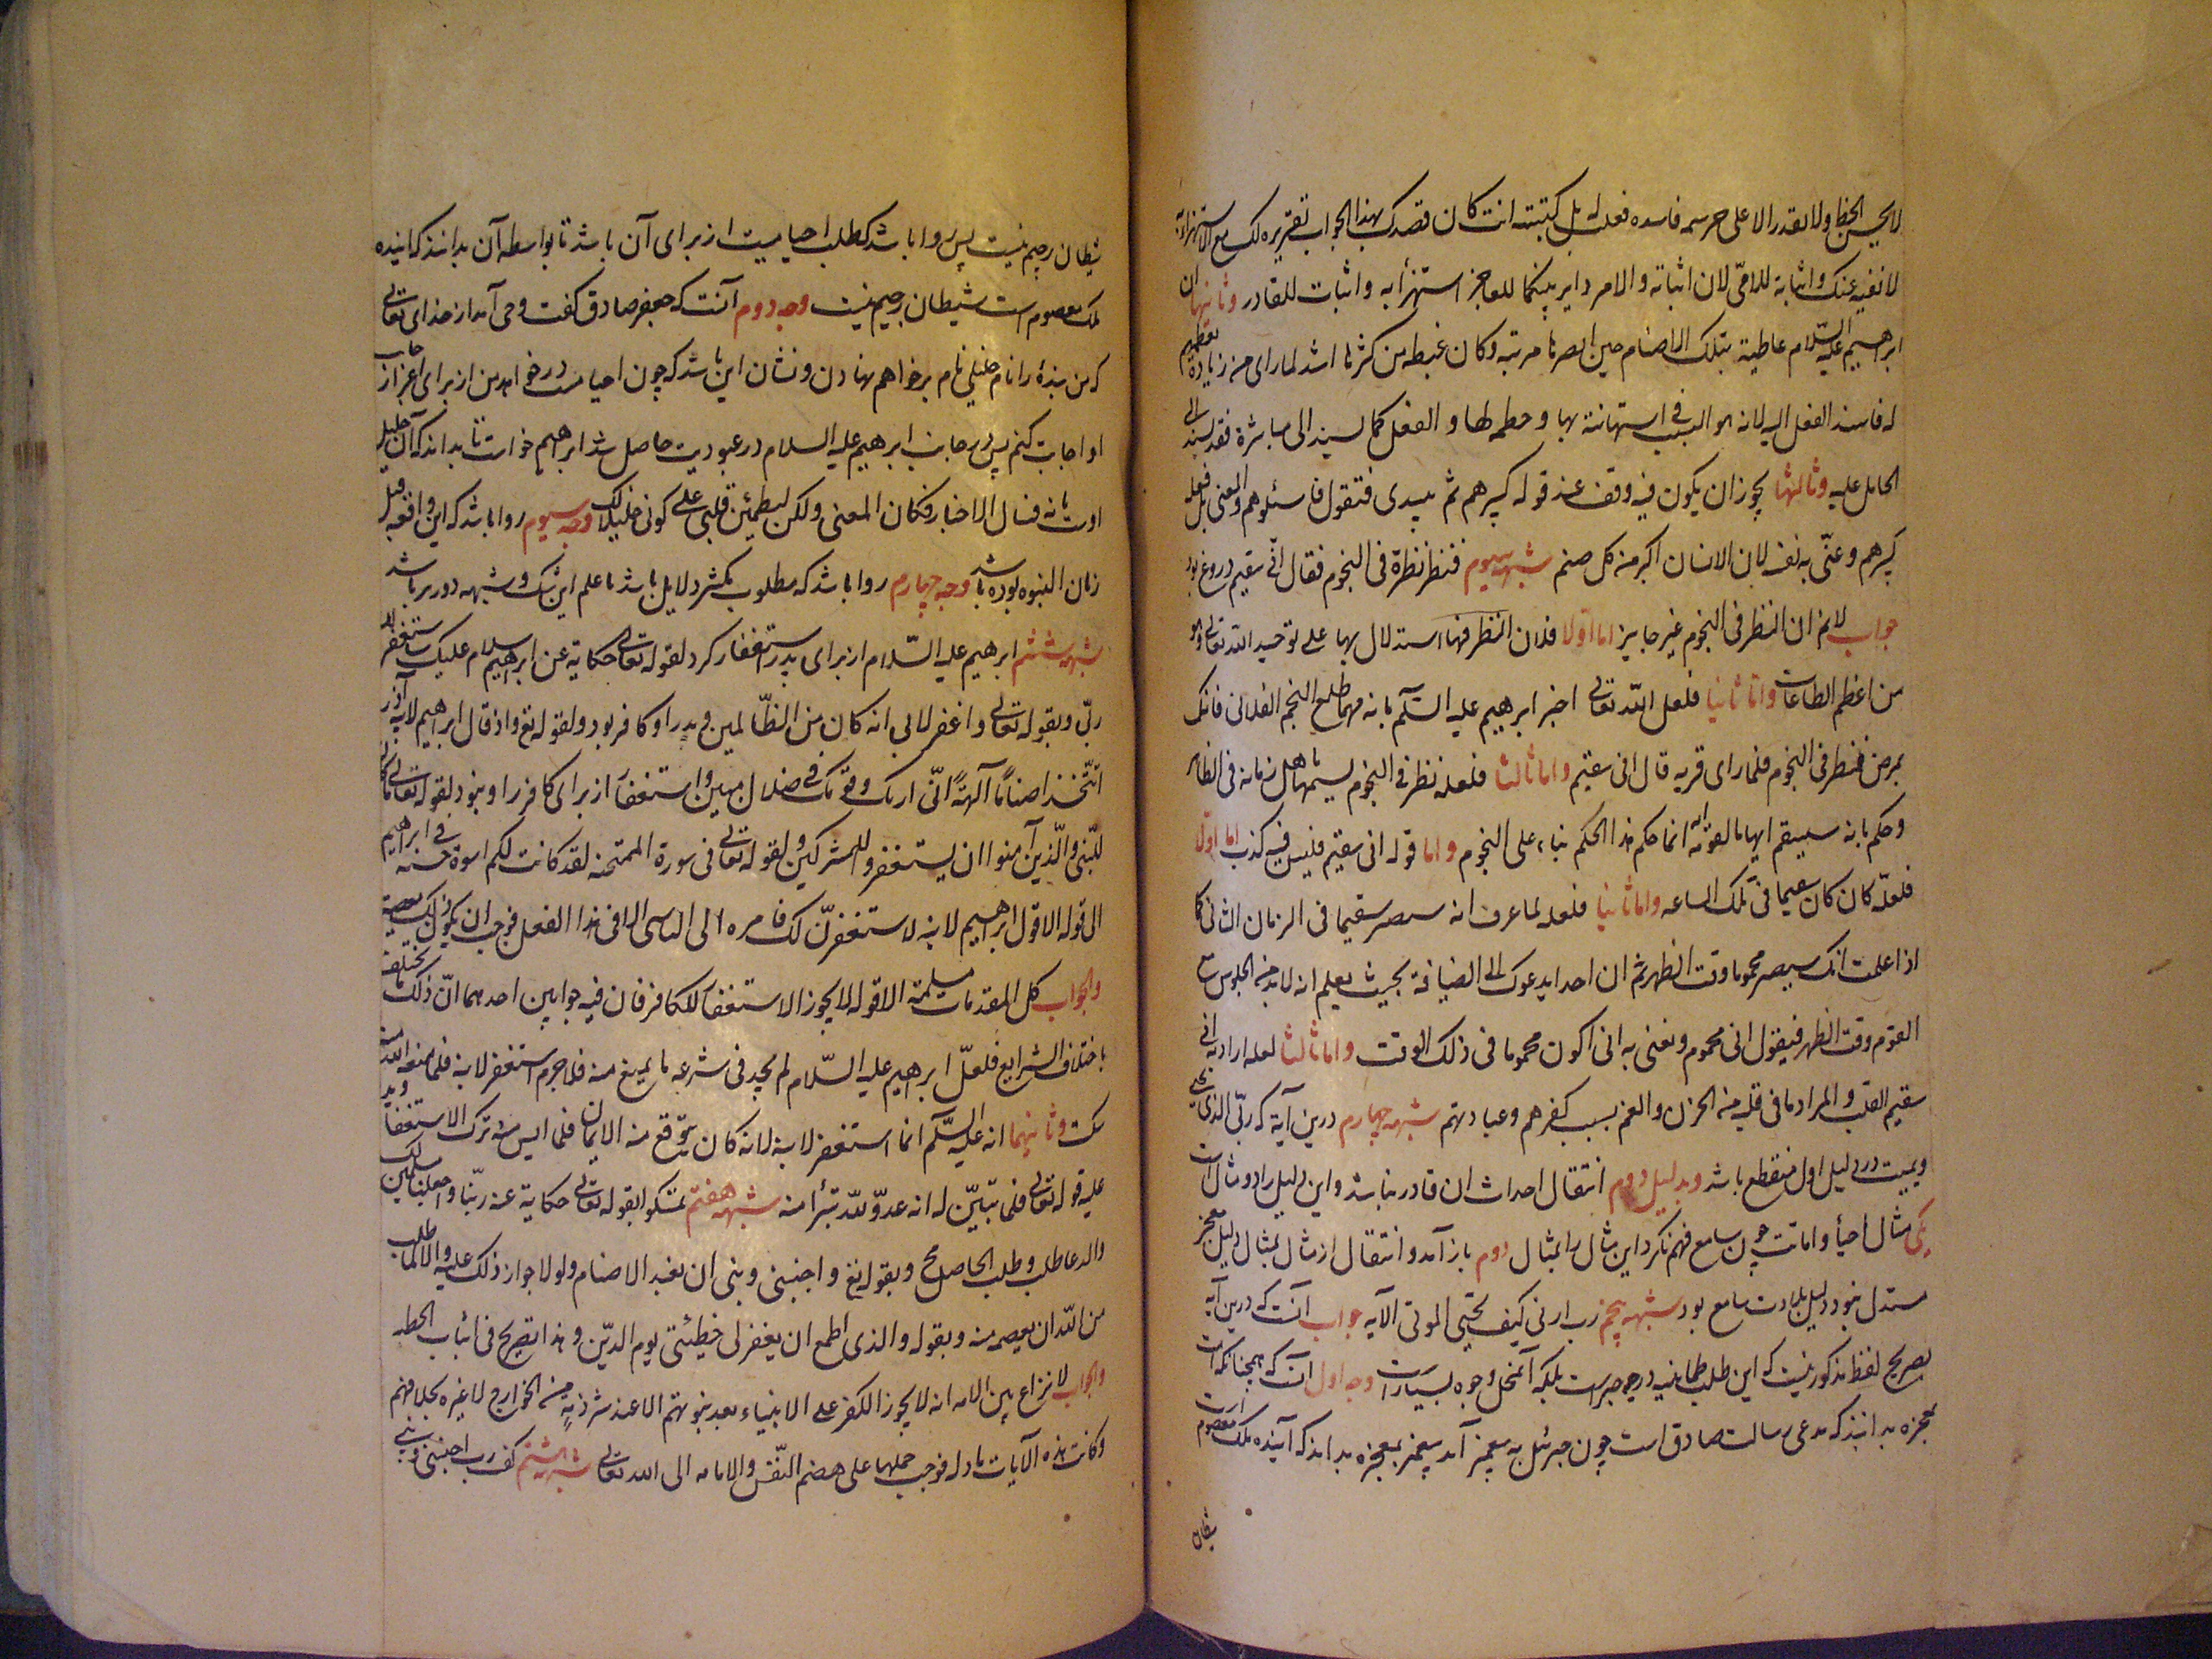 لا يحسن الخط ولا يقدر الا على خرمشه فاسده فعلت له بل كتبته انت كان قصدك بهذا الجواب تقريره لك مع الاستهزاء به
لا نفيه عنك واثباته للامّى لان اثباته والامر داير بينكما للعاجز استهزأ به واثبات للقادر وثانيها ان
ابراهيم عليه السّلام غاظته تلك الاصنام حين ابصرها مرتبه وكان غيظه من كبيرها اشد لما راى من زيادة تعظيم
له فاسند الفعل اليه لانه هو السبب فى استهانته بها وحطمه لها والفعل كما يسند الى مباشره فقد يسند الى
الحامل عليه وثالثها يجوز ان يكون فيه وقف عند قوله كبيرهم ثم يبتدى فتقول فاسئلوهم والمعنى بل فعله
كبيرهم وعنّى به نفسه لان الانسان اكبر من كل صنم شبهه سيوم فنظر نظرة فى النجوم فقال انّى سقيم دروغ بود
جواب لا نم ان النظر فى النجوم غير جايز اما اوّلا فلان النظر فيها استدلال بها على توحيد الله تعالى وهو
من اعظم الطاعات واما ثانيا فلعل اللّه تعالى اخبر ابرهيم عليه السّلم بانه مهما طلع النجم الفلانى فانك
تمرض فنظر فى النجوم فلما راى قربه قال انى سقيم واما ثالثا فلعله نظر فى النجوم تشبها باهل زمانه فى الظاهر
وحكم بانه سيسقم ايهاما لقومه انه انما حكم هذا الحكم بناء على النجوم واما قوله انى سقيم فليس فيه كذب اما اوّلا
فلعلّه كان سقيما فى تلك الساعه واما ثانيا فلعله لما عرف انه سيصير سقيما فى الزمان الثانى كما
اذا علمت انك سيصير محموما وقت الظهر ثم ان احدا يدعوك الى الضيافة بحيث يعلم انه لا بد من الجلوس مع
القوم وقت الظهر فيقول انى محموم ونعنى به انى اكون محموما فى ذلك الوقت واما ثالثا لعله اراد به انى
سقيم القلب والمراد ما فى قلبه من الحزن والغم بسبب كفرهم وعبادتهم شبهه چهارم درين آية كه ربّى الذى يحيى
ويميت در دليل اول منقطع باشد وبدليل دوم انتقال احداث ان قادر نباشد واين دليل را دو مثال است
يكى مثال احيا واماتت چون سامع فهم نكرد اين مثال را بمثال دوم باز آمد وانتقال از مثال بمثال دليل عجز
مستدل نبود دليل بلادت سامع بود شبهه پنجم رب ارنى كيف تحيى الموتى الآيه جواب آنست كه درين آيه
تصريح لفظ مذكور نيست كه اين طلب طمانينه در چه چيزست بلكه آنمحل وجوه بسيارست وجه اول آنكه همچنانكه امت
بمعجزه بدانند كه مدعى رسالت صادق است چون جبرئيل به پيغمبر آمد پيغمبر بمعجزه بداند كه آينده ملك معصوم است
شيطان
شيطان رجيم نيست پس روا باشد كه طلب احيا ميت از براى آن باشد تا بواسطه آن بدانند كه آينده
ملك معصوم است شيطان رجيم نيست وجه دوم آنست كه جعفر صادق گفت وحى آمد از خداى تعالى
كه من بندۀ را نام خليلى نام بر خواهم نهادن ونشان اين باشد كه چون احيا ميت در خواهد من از براى اعزاز جانب
او اجابت كنم پس درجات ابرهيم عليه السلام در عبوديت حاصل شد ابرهيم خواست تا بداند كه آن خليل
اوست يا نه فسال الاخبار فكان المعنى ولكن ليطمئن قلبى على كونى خليلا لك وجه سيوم روا باشد كه اين واقعه قبل
زمان النبوه بوده باشد وجه چهارم روا باشد كه مطلوب تكثير دلايل باشد تا علم اين شك وشبهه دورتر باشد
شبهه ششم ابرهيم عليه السّلام از براى پدر استغفار كرد لقوله تعالى حكاية عن ابرهيم سلام عليك ساستغفر لك
ربّى وبقوله تعالى واغفر لابى انه كان من الظّالمين وپدر او كافر بود ولقوله تع واذ قال ابراهيم لابيه آزر
اتتّخذ اصنامًا آلهةً انّى اريك وقومك فى ضلال مبين واستغفار از براى كافر روا نبود لقوله تعالى ما كان
للنّبى والّذين آمنوا ان يستغفروا للمشركين ولقوله تعالى فى سورة الممتحنه لقد كانت لكم اسوة حسنه فى ابرهيم
الى قوله الا قول ابرهيم لابيه لاستغفرنّ لك فامره الى التاسى الا فى هذا الفعل فوجب ان يكون ذلك معصية
والجواب كل المقدمات مسلمة الا قوله لا يجوز الاستغفار للكافر فان فيه جوابين احدهما انّ ذلك مختلف
باختلاف الشرايع فلعلّ ابرهيم عليه السّلام لم يجد فى شرعه ما يمنع منه فلا جرم استغفر لابيه فلما منعه الله
سكت وثانيهما انه عليه السّلم انما استغفر لابيه لانه كان يتوقع منه الايمان فلما ايس منه ترك الاستغفار ويدل
عليه قوله تعالى فلما تبيّن له انه عدوّ للّه تبرّأ منه شبهه هفتم تمسكوا بقوله تعالى حكاية عنه ربّنا واجعلنا مسلمين لك
والدعا طلب وطلب الحاصل مح وبقوله تع واجنبنى وبنى ان نعبد الاصنام ولولا جواز ذلك عليه والا لما طلب
من اللّه ان يعصمه منه وبقوله والذى اطمع ان يغفر لى خطيئتى يوم الدّين وهذا تصريح فى اثبات الخطيه
والجواب لا نزاع بين الامه انه لا يجوز الكفر على الانبياء بعد نبوتهم الا عند شرذمةٍ من الخوارج لا عبرة بخلافهم
وكانت هذه الآيات ماوله فوجب حملها على هضم النّفس والانابه الى الله تعالى شبهه هشتم گفت رب اجنبنى وبنى